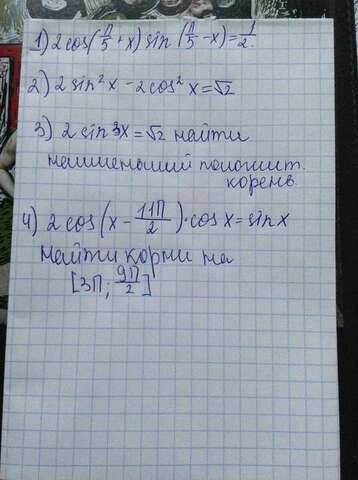 1) 2cos(π/5 + x) sin(π/5 - x) = 1/2.
2) 2 sin²x - 2cos²x = √2
3) 2 sin 3x = √2 найти
наименьший положит.
корень
4) 2 cos(x - 11π/2)·cos x = sin x
найти корни на
[3π; 9π/2]